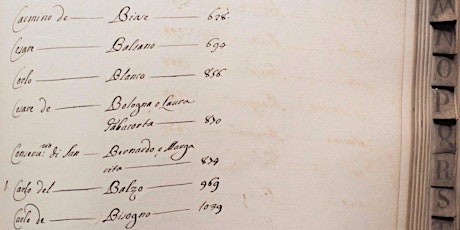 Carmino de — Biase — 628.
Cesare — Balsano — 694
Carlo — Blanco — 856
Cesare de — Bologna e Laura
Tabacorta — 830
Conserva.rio di San — Bernardo, e Marga
rita — 834
Carlo del — Balzo — 969
Carlo de — Bisogno — 1089
M
N
O
P
Q
R
S
T